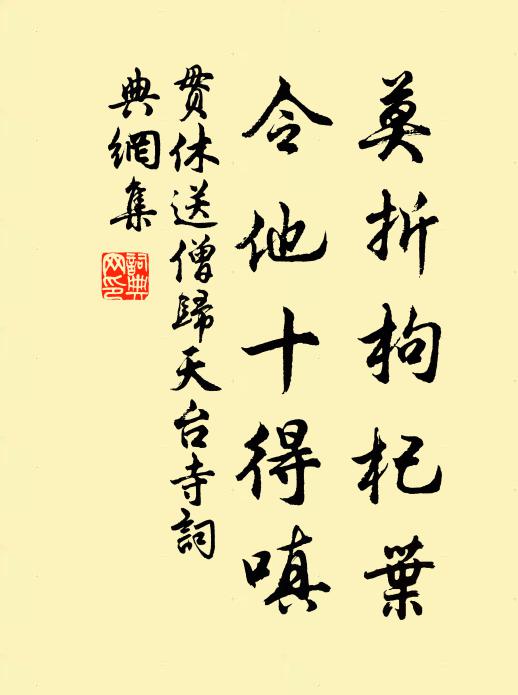 莫折枸杞葉
令他十得嗔
貫休送僧歸天台寺詞
典網集
詞典網印